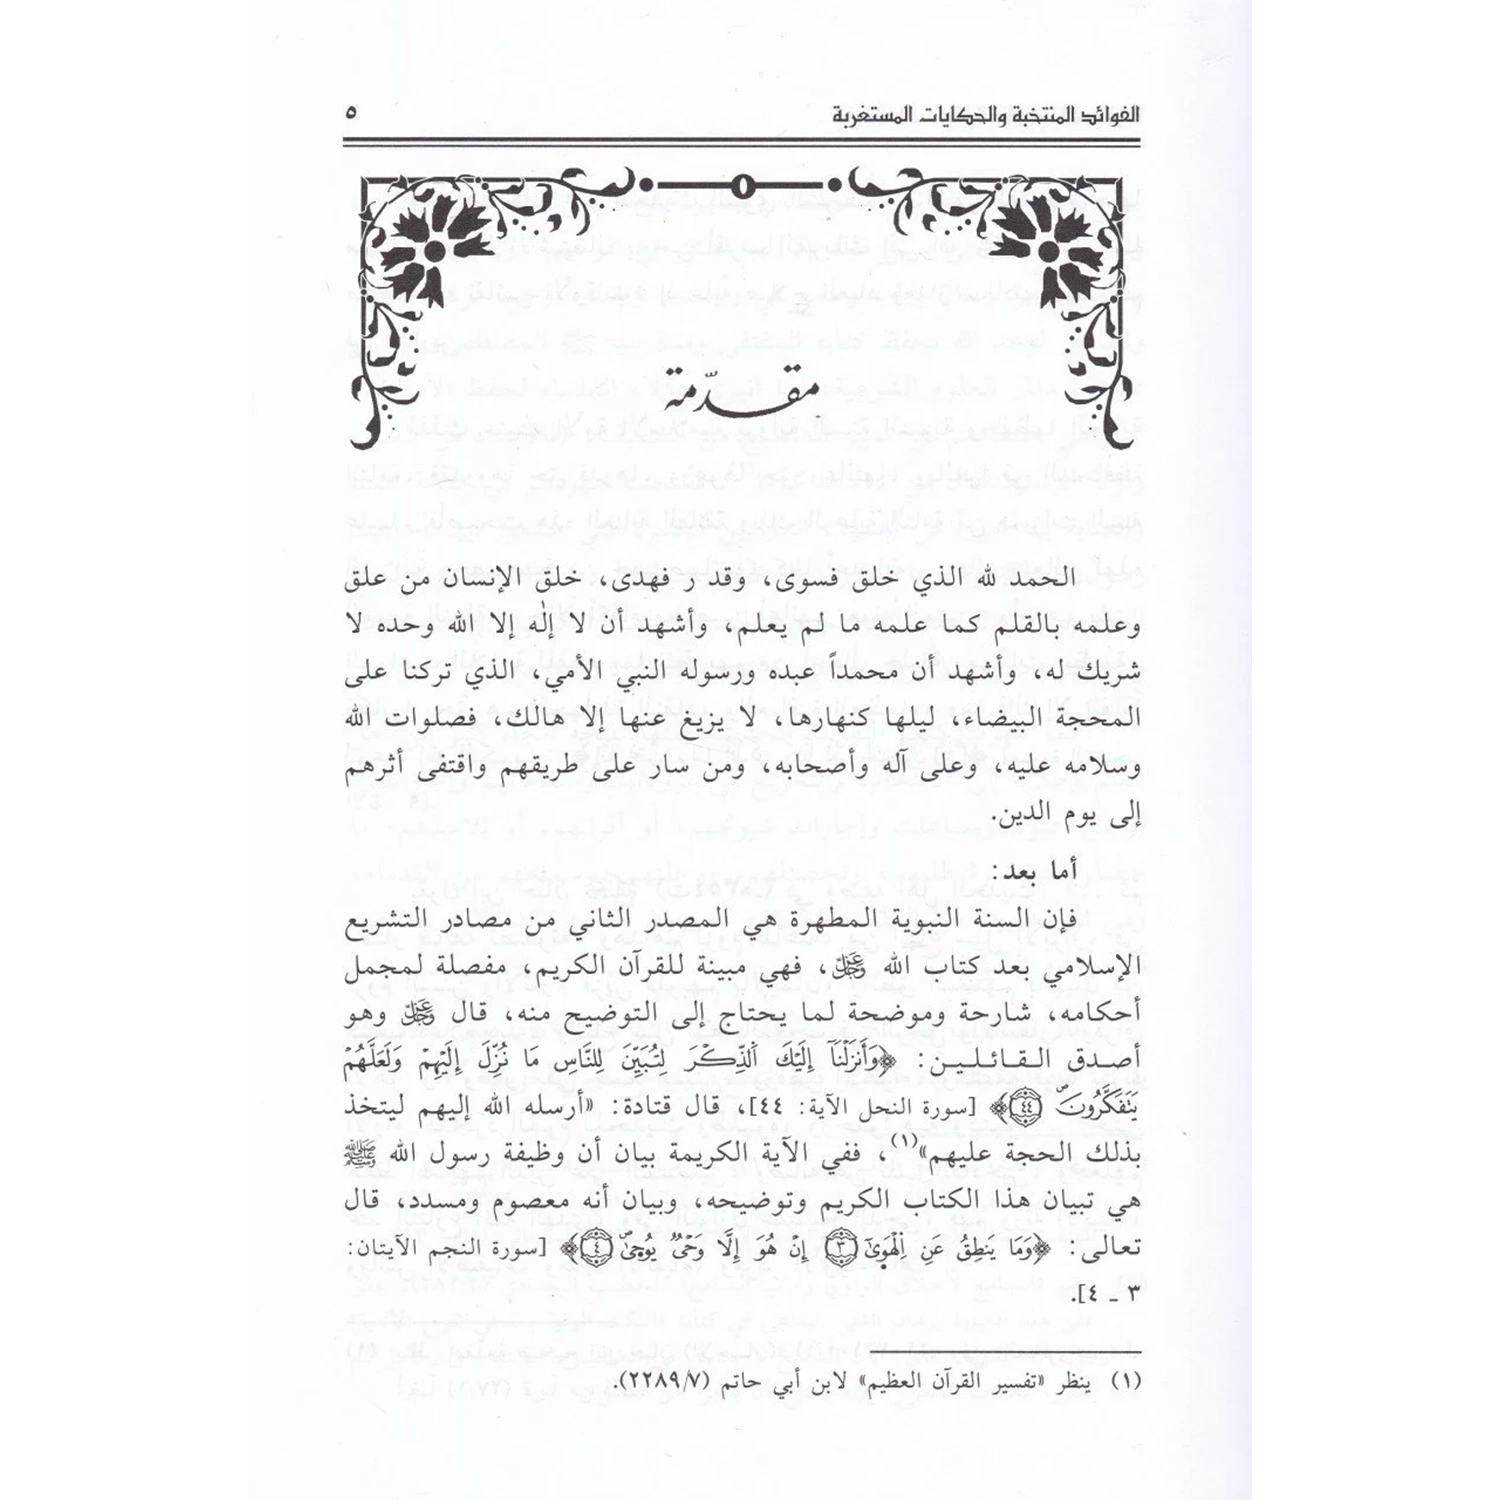 الفوائد المنتخبة والحكايات المستغربة ٥
مقدّمة
الحمد لله الذي خلق فسوى، وقد ر فهدى، خلق الإنسان من علق
وعلمه بالقلم كما علمه ما لم يعلم، وأشهد أن لا إلٰه إلا الله وحده لا
شريك له، وأشهد أن محمداً عبده ورسوله النبي الأمي، الذي تركنا على
المحجة البيضاء، ليلها كنهارها، لا يزيغ عنها إلا هالك، فصلوات الله
وسلامه عليه، وعلى آله وأصحابه، ومن سار على طريقهم واقتفى أثرهم
إلى يوم الدين.
أما بعد:
فإن السنة النبوية المطهرة هي المصدر الثاني من مصادر التشريع
الإسلامي بعد كتاب الله عَزَّوَجَلَّ، فهي مبينة للقرآن الكريم، مفصلة لمجمل
أحكامه، شارحة وموضحة لما يحتاج إلى التوضيح منه، قال عَزَّوَجَلَّ وهو
أصدق القـائلـيـن: ﴿وَأَنزَلْنَآ إِلَيْكَ ٱلذِّكْرَ لِتُبَيِّنَ لِلنَّاسِ مَا نُزِّلَ إِلَيْهِمْ وَلَعَلَّهُمْ
يَتَفَكَّرُونَ ۝٤٤﴾ [سورة النحل الآية: ٤٤]، قال قتادة: «أرسله الله إليهم ليتخذ
بذلك الحجة عليهم»(١)، ففي الآية الكريمة بيان أن وظيفة رسول الله ﷺ
هي تبيان هذا الكتاب الكريم وتوضيحه، وبيان أنه معصوم ومسدد، قال
تعالى: ﴿وَمَا يَنطِقُ عَنِ ٱلْهَوَىٰٓ ۝٣ إِنْ هُوَ إِلَّا وَحْىٌ يُوحَىٰ ۝٤﴾ [سورة النجم الآيتان:
٣ ـ ٤].
(١) ينظر «تفسير القرآن العظيم» لابن أبي حاتم (٢٢٨٩/٧).